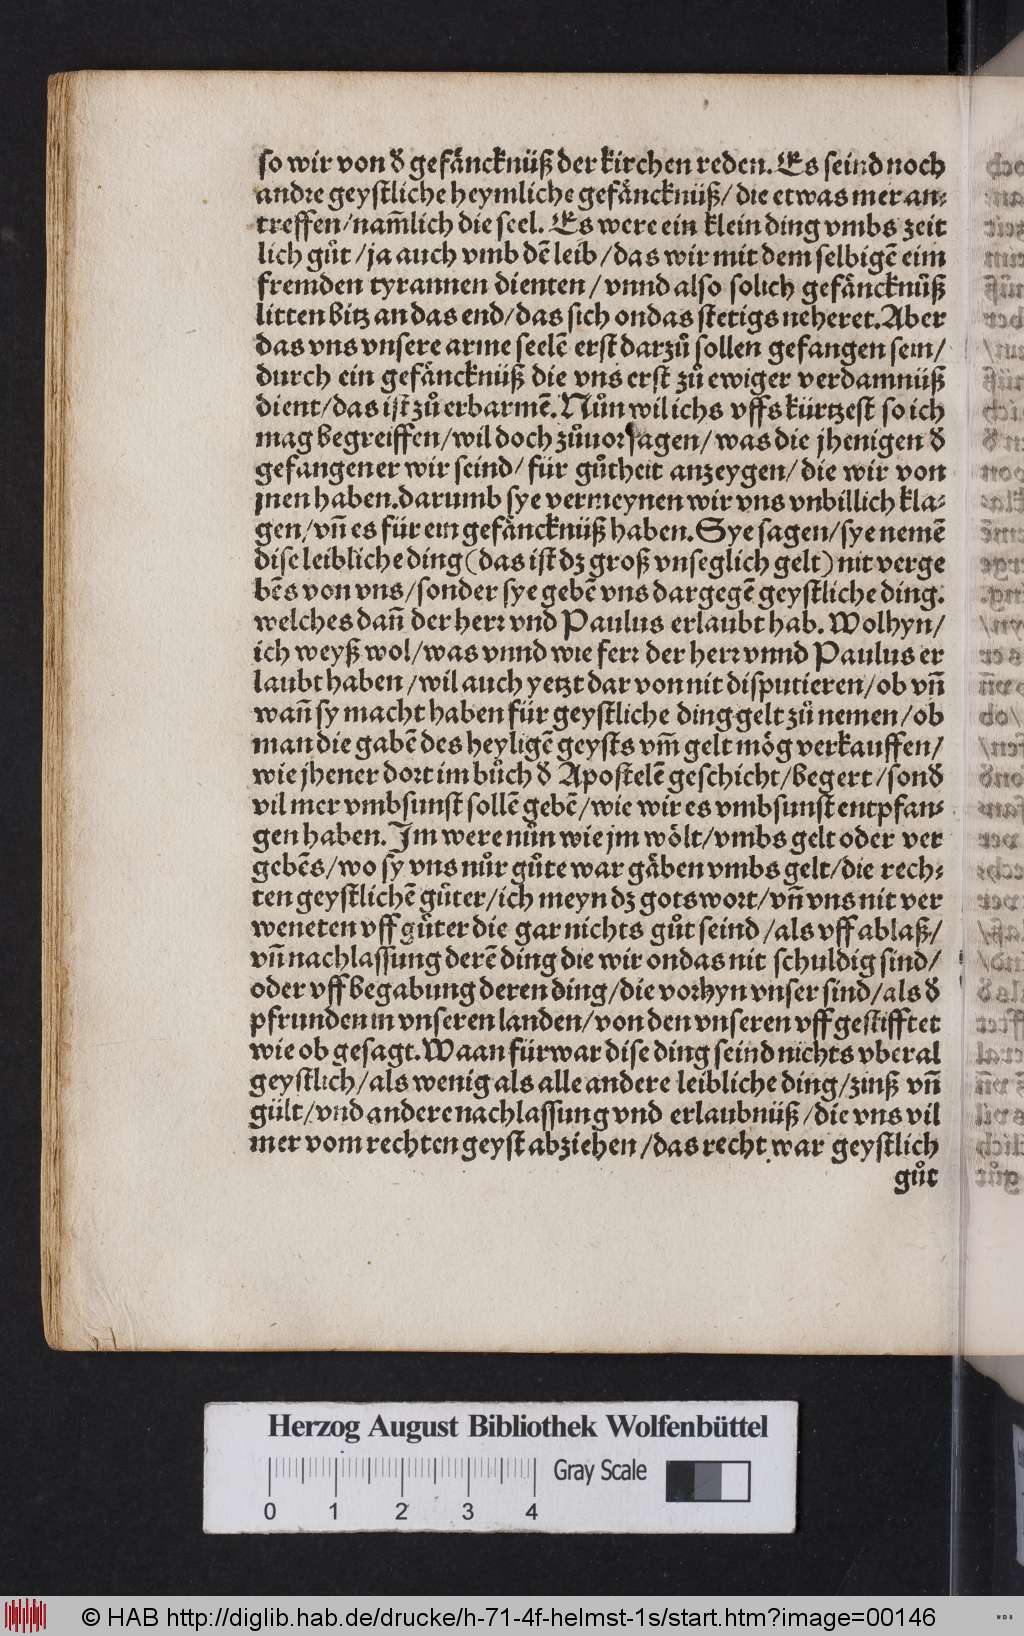 so wir vonď gefaͤncknüß der kirchen reden. Es seind noch
andre geystliche heymliche gefaͤncknüß/ die etwas mer an⸗
treffen/nam̃lich die seel. Es were ein klein ding vmbs zeit
lich guͦt /ja auch vmb dē leib /das wir mit dem selbigē eim
fremden tyrannen dienten / vnnd also solich gefaͤncknüß
litten bitz an das end/das sich on das stetigs neheret. Aber
das vns vnsere arme seelē erst darzuͦ sollen gefangen sein/
durch ein gefaͤncknüß die vns erst zuͦ ewiger verdamnüß
dient/das ist zuͦ erbarmē. Nuͦn wil ichs vffs kürtzest so ich
mag begreiffen/wil doch zuͦuor sagen/ was die jhenigen ď
gefangener wir seind/ für guͦtheit anzeygen/ die wir von
jnen haben. darumb sye vermeynen wir vns vnbillich kla⸗
gen/vñ es für ein gefaͤncknüß haben. Sye sagen/sye nemē
dise leibliche ding(das ist dz groß vnseglich gelt) nit verge
bēs von vns/sonder sye gebē vns dargegē geystliche ding.
welches dañ der herr vnd Paulus erlaubt hab. Wolhyn/
ich weyß wol/was vnnd wie ferr der herr vnnd Paulus er
laubt haben /wil auch yetzt dar von nit disputieren/ob vñ
wañ sy macht haben für geystliche ding gelt zuͦ nemen/ob
man die gabē des heyligē geysts vm̃ gelt moͤg verkauffen/
wie jhener dort im buͦch ď Apostelē geschicht/begert/sonď
vil mer vmbsunst sollē gebē/wie wir es vmbsunst entpfan⸗
gen haben. Im were nuͦn wie jm woͤlt/vmbs gelt oder ver
gebēs/wo sy vns nuͦr guͦte war gaͤben vmbs gelt/die rech⸗
ten geystlichē guͤter/ich meyn dz gots wort/vñ vns nit ver
weneten vff guͤter die gar nichts guͦt seind /als vff ablaß/
vñ nachlassung derē ding die wir on das nit schuldig sind/
oder vff begabung deren ding/die vorhyn vnser sind/als ď
pfrunden in vnseren landen/von den vnseren vff gestifftet
wie ob gesagt. Waan fürwar dise ding seind nichts vberal
geystlich/als wenig als alle andere leibliche ding/zinß vñ
gült/vnd andere nachlassung vnd erlaubnüß /die vns vil
mer vom rechten geyst abziehen /das recht war geystlich
guͦt
Herzog August Bibliothek Wolfenbüttel
Gray Scale
0 1 2 3 4
© HAB http://diglib.hab.de/drucke/h-71-4f-helmst-1s/start.htm?image=00146